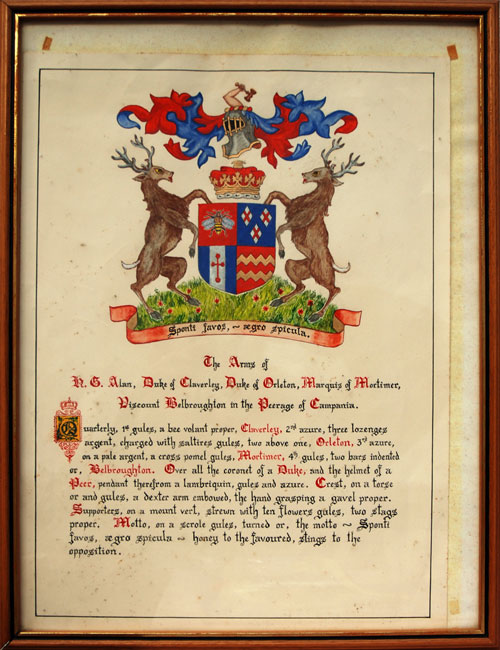 Sponti favos, ~ ægro spicula.
The Arms of
H. G. Alan, Duke of Claverley, Duke of Orleton, Marquis of Mortimer,
Viscount Belbroughton in the Peerage of Campania.
Quarterly, 1st gules, a bee volant proper, Claverley, 2nd azure, three lozenges
argent, charged with saltires gules, two above one, Orleton, 3rd azure,
on a pale argent, a cross pomel gules, Mortimer, 4th gules, two bars indented
or, Belbroughton. Over all the coronet of a Duke, and the helmet of a
Peer, pendant therefrom a lambriquin, gules and azure. Crest, on a torse
or and gules, a dexter arm embowed, the hand grasping a gavel proper.
Supporters, on a mount vert, strewn with ten flowers gules, two stags
proper. Motto, on a scrole gules, turned or, the motto ~ Sponti
favos, ægro spicula ~ honey to the favoured, stings to the
opposition.